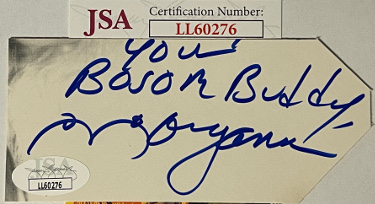 JSA
Certification Number:
LL60276
you
Bosom Buddy,
Morganna
JSA
LL60276